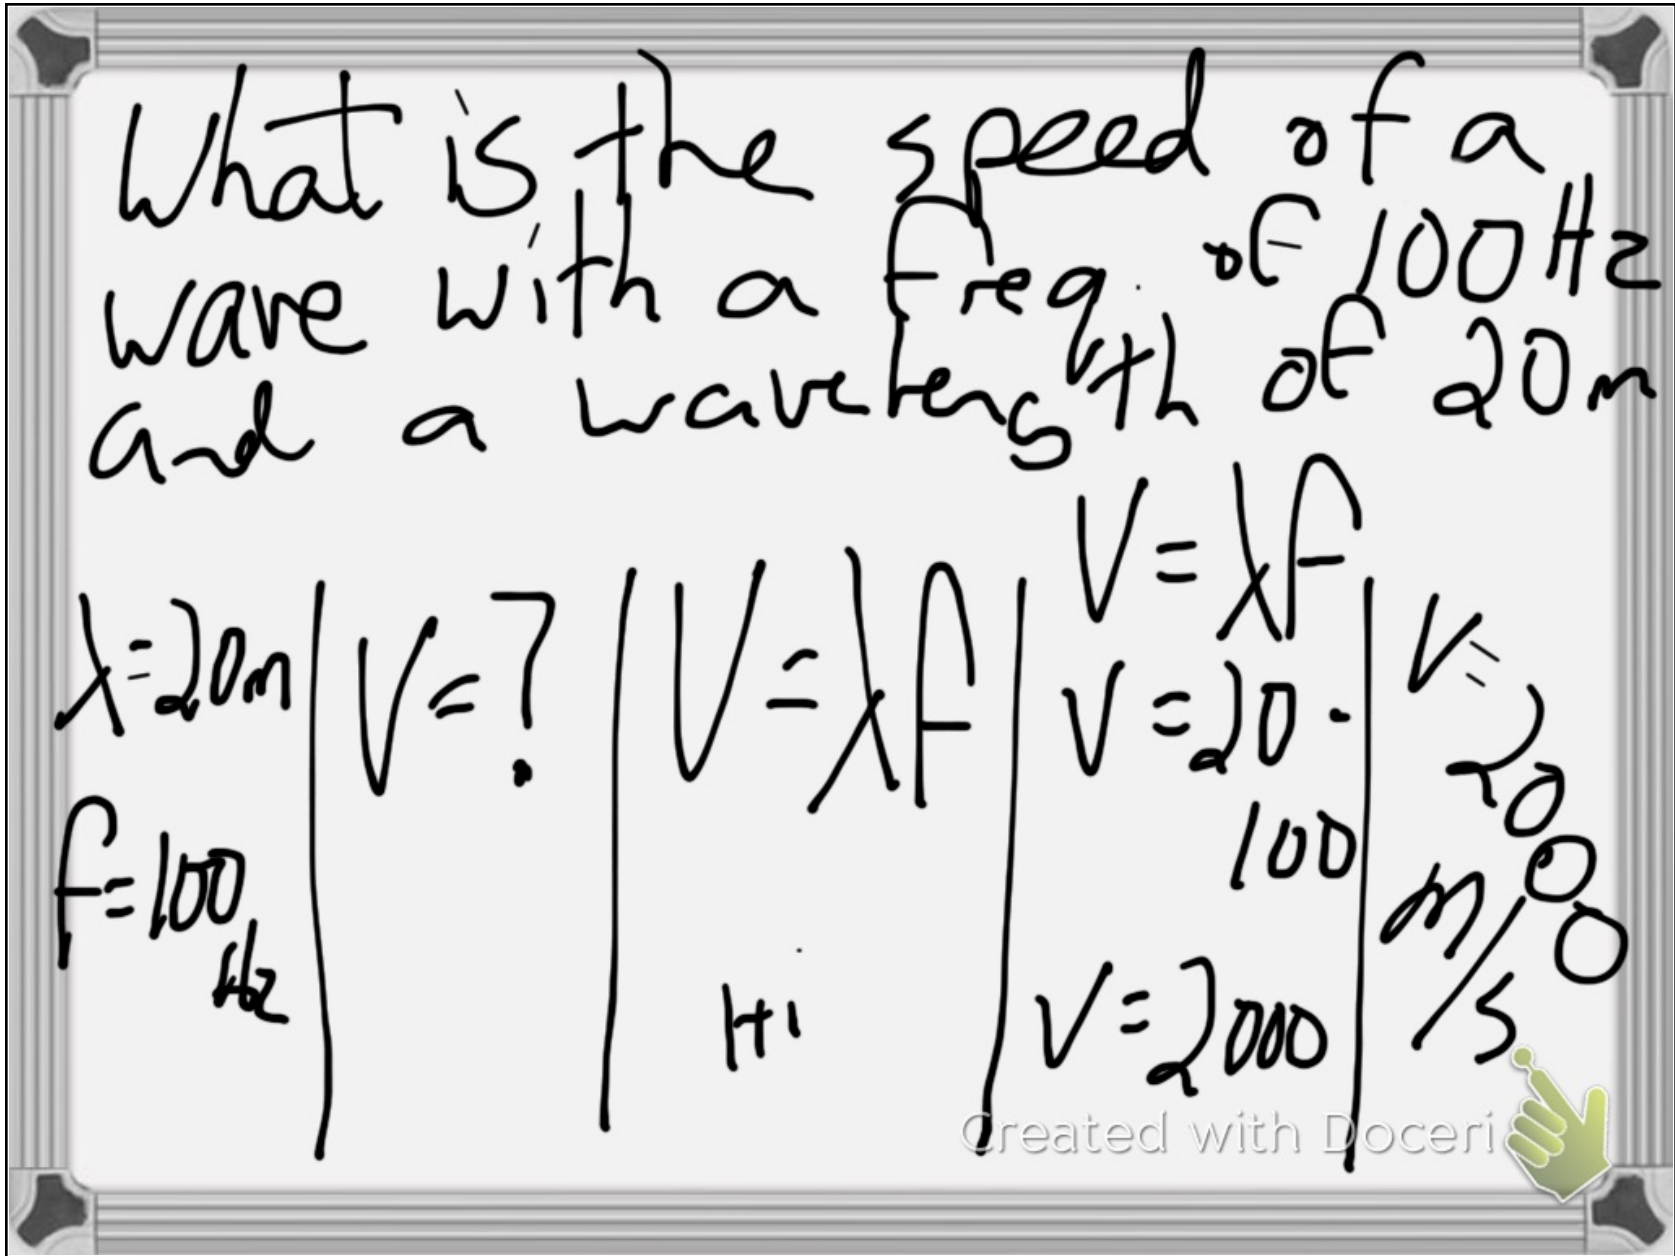 What is the speed of a
wave with a freq. of 100 Hz
and a wavelength of 20 m
λ=20m
f=100
Hz
V=?
V=λf
Hi
V=λf
V=20·
100
V=2000
V=
2000
m/s
Created with Doceri